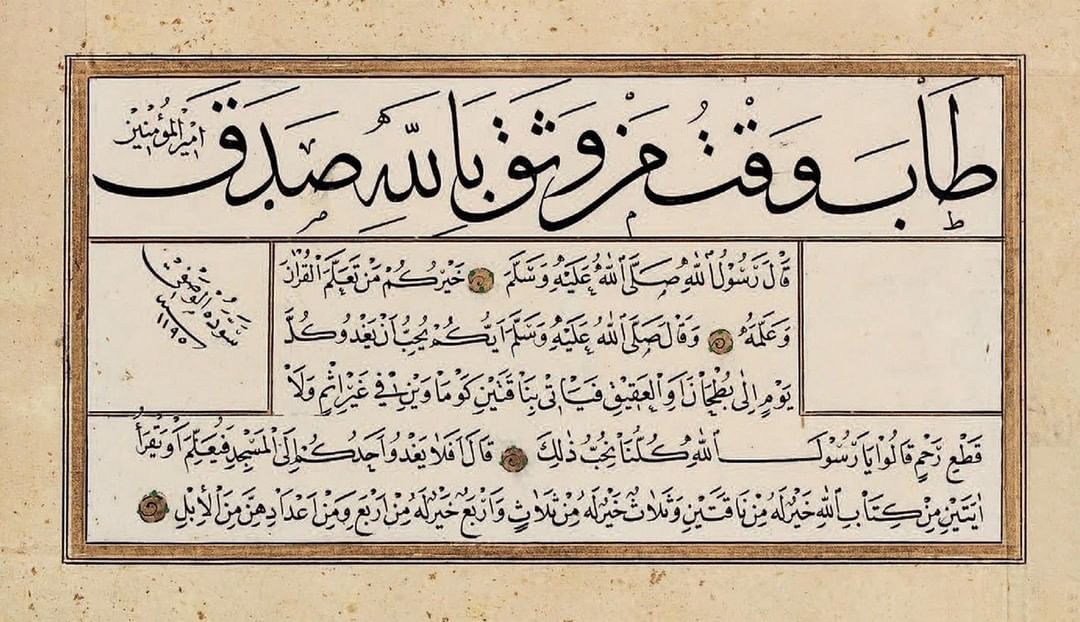 طَابَ وَقْتُ مَنْ وَثِقَ بِاللّٰهِ صَدَقَ
امير المؤمنين
قَالَ رَسُولُ اللّٰهِ صَلَّى اللّٰهُ عَلَيْهِ وَسَلَّمَ خَيْرُكُمْ مَنْ تَعَلَّمَ الْقُرْاٰنَ
وَعَلَّمَهُ وَقَالَ صَلَّى اللّٰهُ عَلَيْهِ وَسَلَّمَ اَيُّكُمْ يُحِبُّ اَنْ يَغْدُوَ كُلَّ
يَوْمٍ اِلٰى بُطْحَانَ اَوِ الْعَقِيقِ فَيَاْتِىَ بِنَاقَتَيْنِ كَوْمَاوَيْنِ فِي غَيْرِ اِثْمٍ وَلَا
قَطْعِ رَحِمٍ قَالُوا يَا رَسُولَ اللّٰهِ كُلُّنَا نُحِبُّ ذٰلِكَ قَالَ اَفَلَا يَغْدُو اَحَدُكُمْ اِلَى الْمَسْجِدِ فَيُعَلِّمَ اَوْ يَقْرَأَ
اٰيَتَيْنِ مِنْ كِتَابِ اللّٰهِ خَيْرٌ لَهُ مِنْ نَاقَتَيْنِ وَثَلَاثٌ خَيْرٌ لَهُ مِنْ ثَلَاثٍ وَاَرْبَعٌ خَيْرٌ لَهُ مِنْ اَرْبَعٍ وَمِنْ اَعْدَادِهِنَّ مِنَ الْاِبِلِ
سوّده الوصفى
سنه ١١٩٥